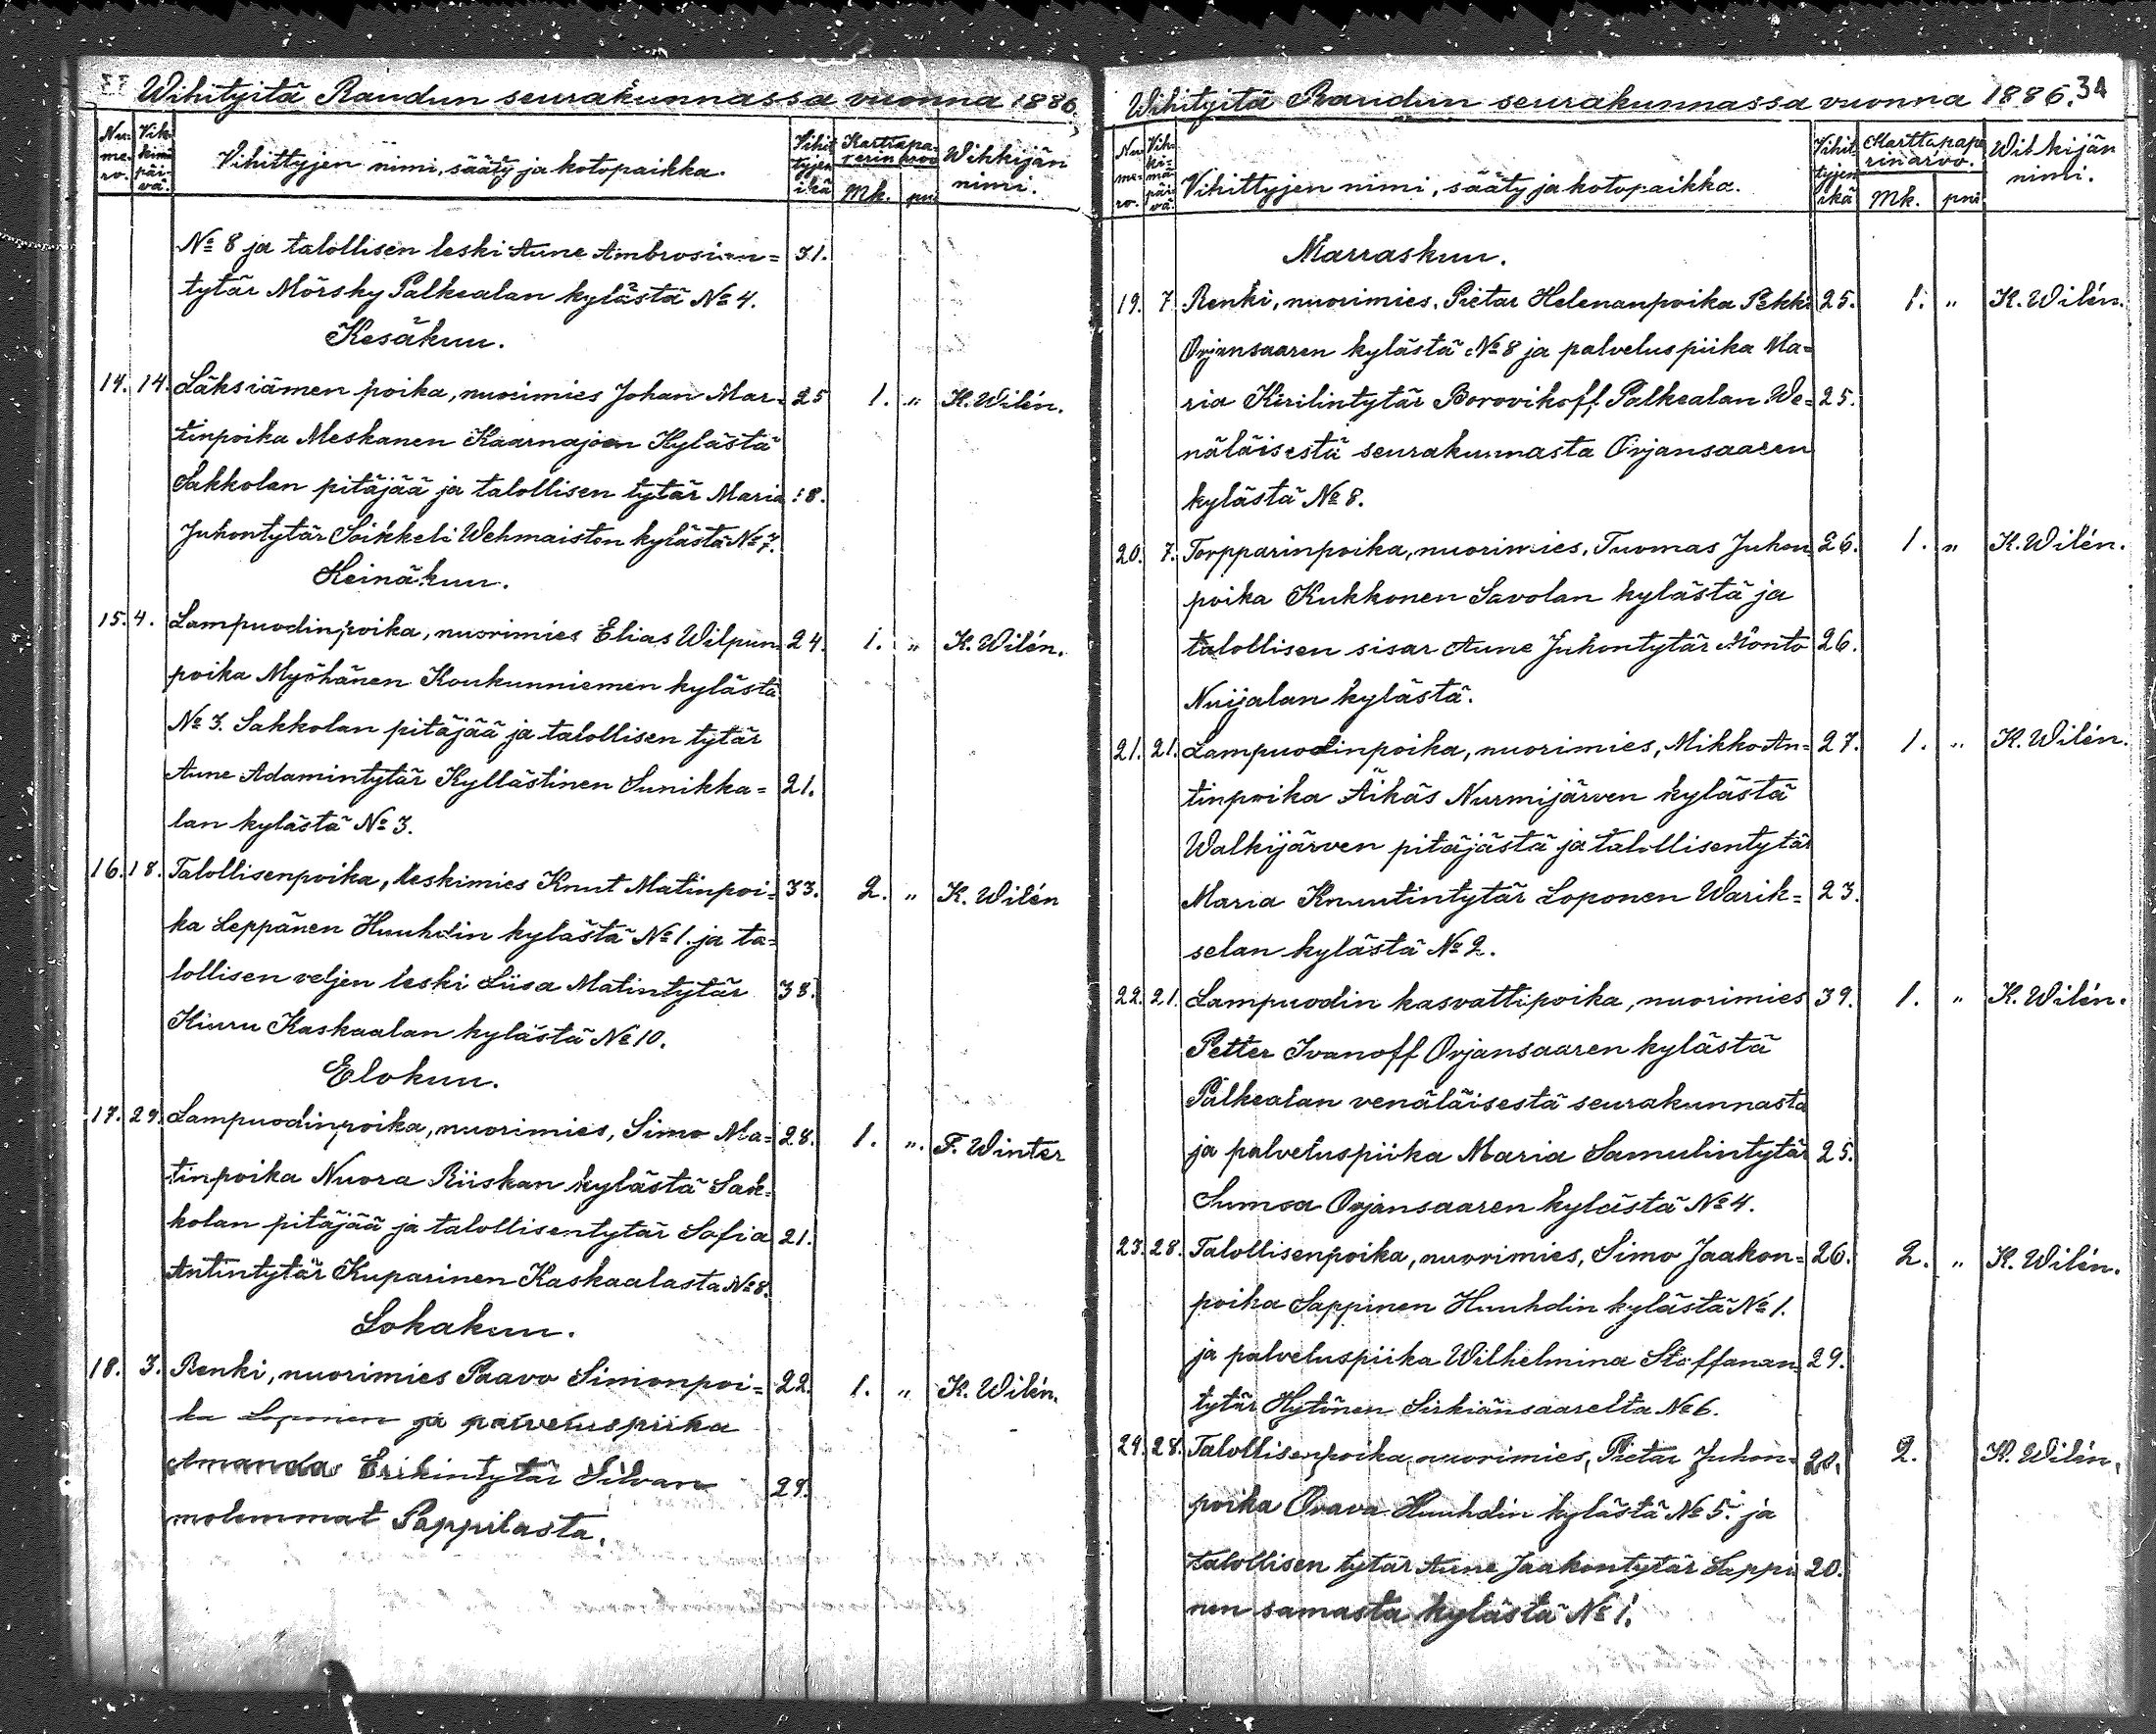 Wihityitä Raudun seurakunnassa vuonna 1886.
Nu-mero. Vihkimäpäivä. Vihittyjen nimi, sääty ja kotopaikka. Vihittyjen ikä Karttapaperin arvo Mk. pni Wihkijän nimi.
№ 8 ja talollisen leski Aune Ambrosiun= 31.
tytär Mörsky Palkealan kylästä № 4.
Kesäkuu.
14. 14. Läksiämen poika, nuorimies Johan Mar= 25 1. „ K. Wilén.
tinpoika Meskanen Kaarnajoen Kylästä
Sakkolan pitäjää ja talollisen tytär Maria 18.
Juhontytär Soikkeli Wehmaiston kylästä № 7.
Heinäkuu.
15. 4. Lampuodinpoika, nuorimies Elias Wilpun 24. 1. „ K. Wilén.
poika Myöhänen Koukunniemen kylästä
№ 3. Sakkolan pitäjää ja talollisen tytär
Aune Adamintytär Kyllästinen Sunikka= 21.
lan kylästä № 3.
16. 18. Talollisenpoika, leskimies Knut Matinpoi= 33. 2. „ K. Wilén
ka Leppänen Huuhdin kylästä № 1. ja ta=
lollisen veljen leski Liisa Matintytär 38.
Kiuru Kaskaalan kylästä № 10.
Elokuu.
17. 29. Lampuodinpoika, nuorimies, Simo Ma= 28. 1. „. F. Winter
tinpoika Nuora Riiskan kylästä Sak=
kolan pitäjää ja talollisentytär Sofia 21.
Antintytär Kuparinen Kaskaalasta № 8.
Lokakuu.
18. 3. Renki, nuorimies Paavo Simonpoi= 22. 1. „ K. Wilén.
ka Loponen ja palveluspiika
Amanda Erikintytär Silvan 29.
molemmat Pappilasta.
Wihityitä Raudun seurakunnassa vuonna 1886. 34
Nu-mero. Vihkimäpäivä. Vihittyjen nimi, sääty ja kotopaikka. Vihittyjen ikä Karttapaperin arvo. Mk. pni Wihkijän nimi.
Marraskuu.
19. 7. Renki, nuorimies, Pietar Helenanpoika Pekki 25. 1. „ K. Wilén.
Orjansaaren kylästä № 8 ja palveluspiika Ma=
ria Kirilintytär Borovikoff Palkealan We= 25.
näläisestä seurakunnasta Orjansaaren
kylästä № 8.
20. 7. Torpparinpoika, nuorimies, Tuomas Juhon 26. 1. „ K. Wilén.
poika Kukkonen Savolan kylästä ja
talollisen sisar Aune Juhontytär Mönto 26.
Nuijalan kylästä.
21. 21. Lampuodinpoika, nuorimies, Mikko An= 27. 1. „ K. Wilén.
tinpoika Äikäs Nurmijärven kylästä
Walkijärven pitäjästä ja talollisentytär
Maria Knuutintytär Loponen Warik= 23.
selan kylästä № 2.
22. 21. Lampuodin kasvattipoika, nuorimies 39. 1. „ K. Wilén.
Petter Ivanoff Orjansaaren kylästä
Palkealan venäläisestä seurakunnasta
ja palveluspiika Maria Samulintytär 25.
Sumsa Orjansaaren kylästä № 4.
23. 28. Talollisenpoika, nuorimies, Simo Jaakon= 26. 2. „ K. Wilén.
poika Lappinen Huuhdin kylästä № 1.
ja palveluspiika Wilhelmina Staffanan 29.
tytär Hytönen Sirkiänsaarelta № 6.
24. 28. Talollisenpoika, nuorimies, Pietar Juhon= 2. K. Wilén.
poika Orava Huuhdin kylästä № 5. ja
talollisen tytär Aune Jaakontytär Lappi 20.
nen samasta kylästä № 1.